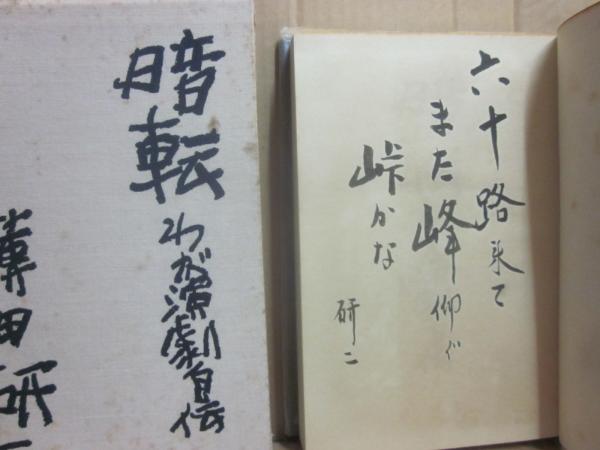 暗転
わが演劇自伝
薄田研二
六十路来て
また峰仰ぐ
峠かな
研二